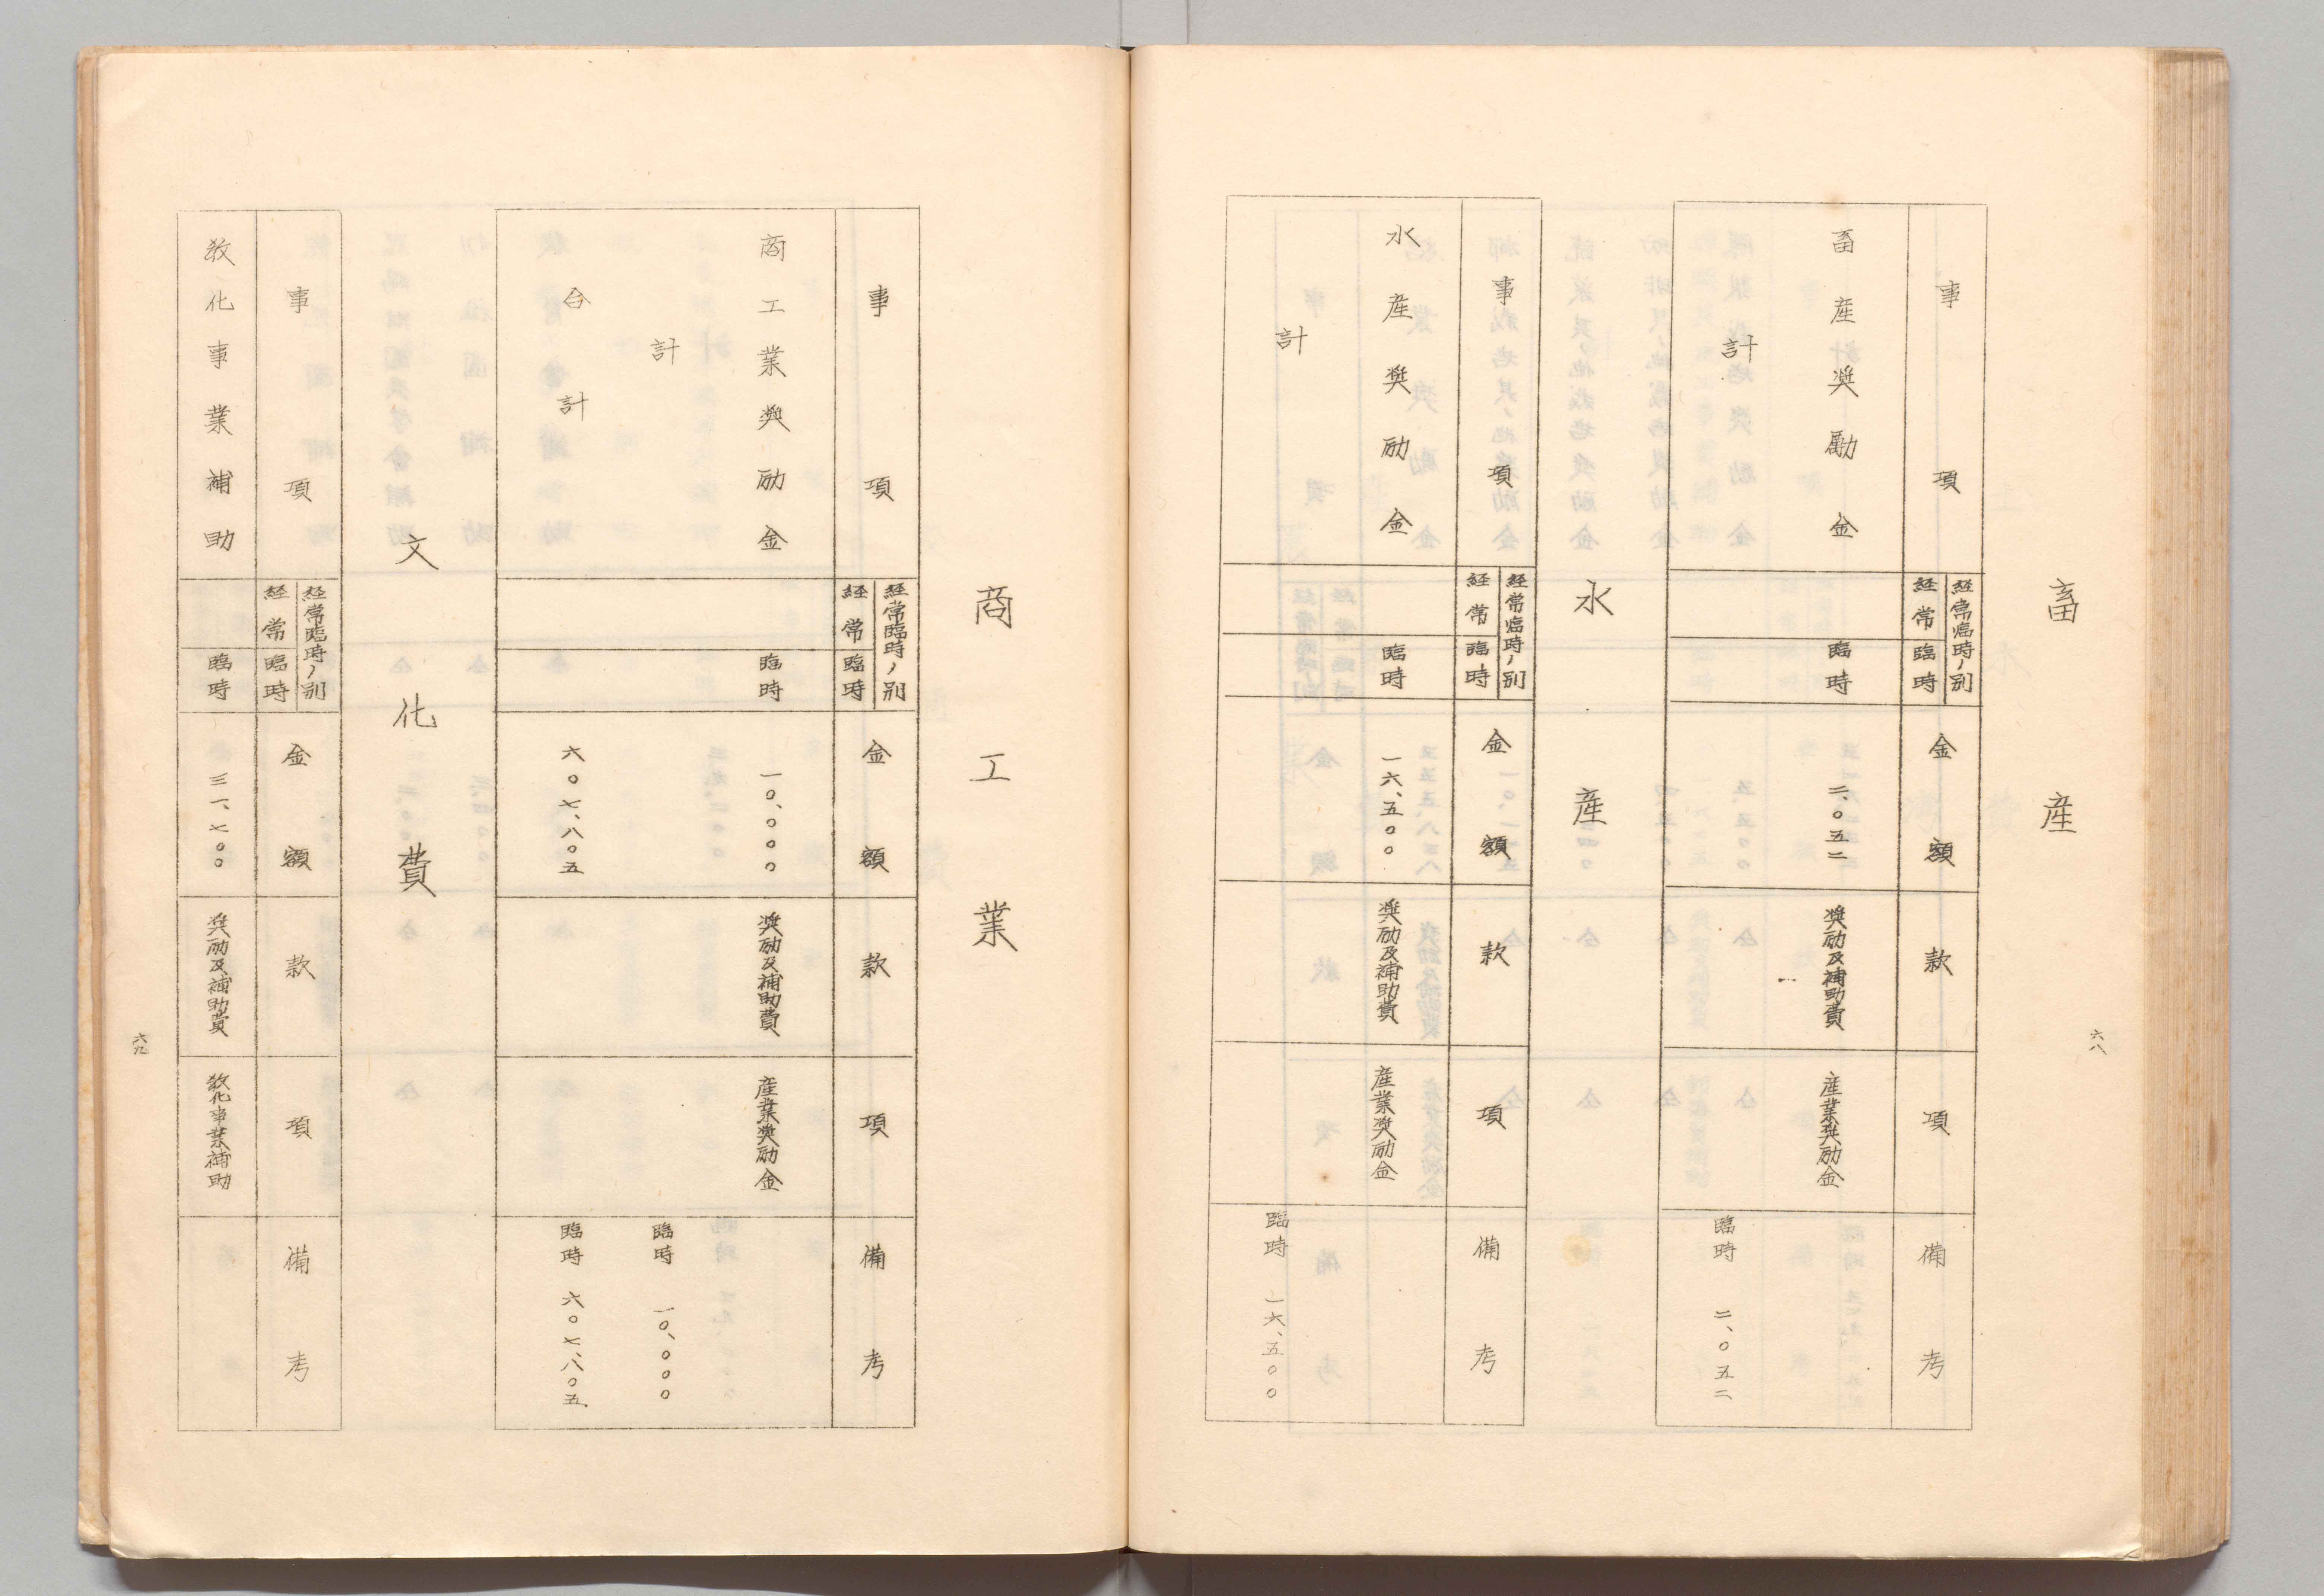 畜産
事項
経常臨時ノ別
経常
臨時
金額
款
項
備考
畜産奨勵金
臨時
二、〇五二
奨励及補助費
産業奨励金
計
臨時 二、〇五二
水産
事項
経常臨時ノ別
経常
臨時
金額
款
項
備考
水産奨励金
臨時
一六、五〇〇
奨励及補助費
産業奨励金
計
臨時 一六、五〇〇
六八
商工業
事項
経常臨時ノ別
経常
臨時
金額
款
項
備考
商工業奨励金
臨時
一〇、〇〇〇
奨励及補助費
産業奨励金
計
臨時 一〇、〇〇〇
合計
六〇七、八〇五
臨時 六〇七、八〇五
文化費
事項
経常臨時ノ別
経常
臨時
金額
款
項
備考
教化事業補助
臨時
三一、七〇〇
奨励及補助費
教化事業補助
六九